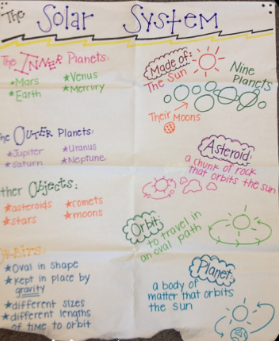 The Solar System
The INNER Planets:
★Mars ★Venus
★Earth ★Mercury
The OUTER Planets:
★Jupiter ★Uranus
★Saturn ★Neptune
Other Objects:
★asteroids ★comets
★stars ★moons
★Oval in shape
★Kept in place by
gravity
★different sizes
★different lengths
of time to orbit
Made of:
The Sun
Nine
Planets
Their Moons
Asteroid:
a chunk of rock
that orbits the sun
Orbit:
to travel in
an oval path
Planet:
a body of
matter that orbits
the sun